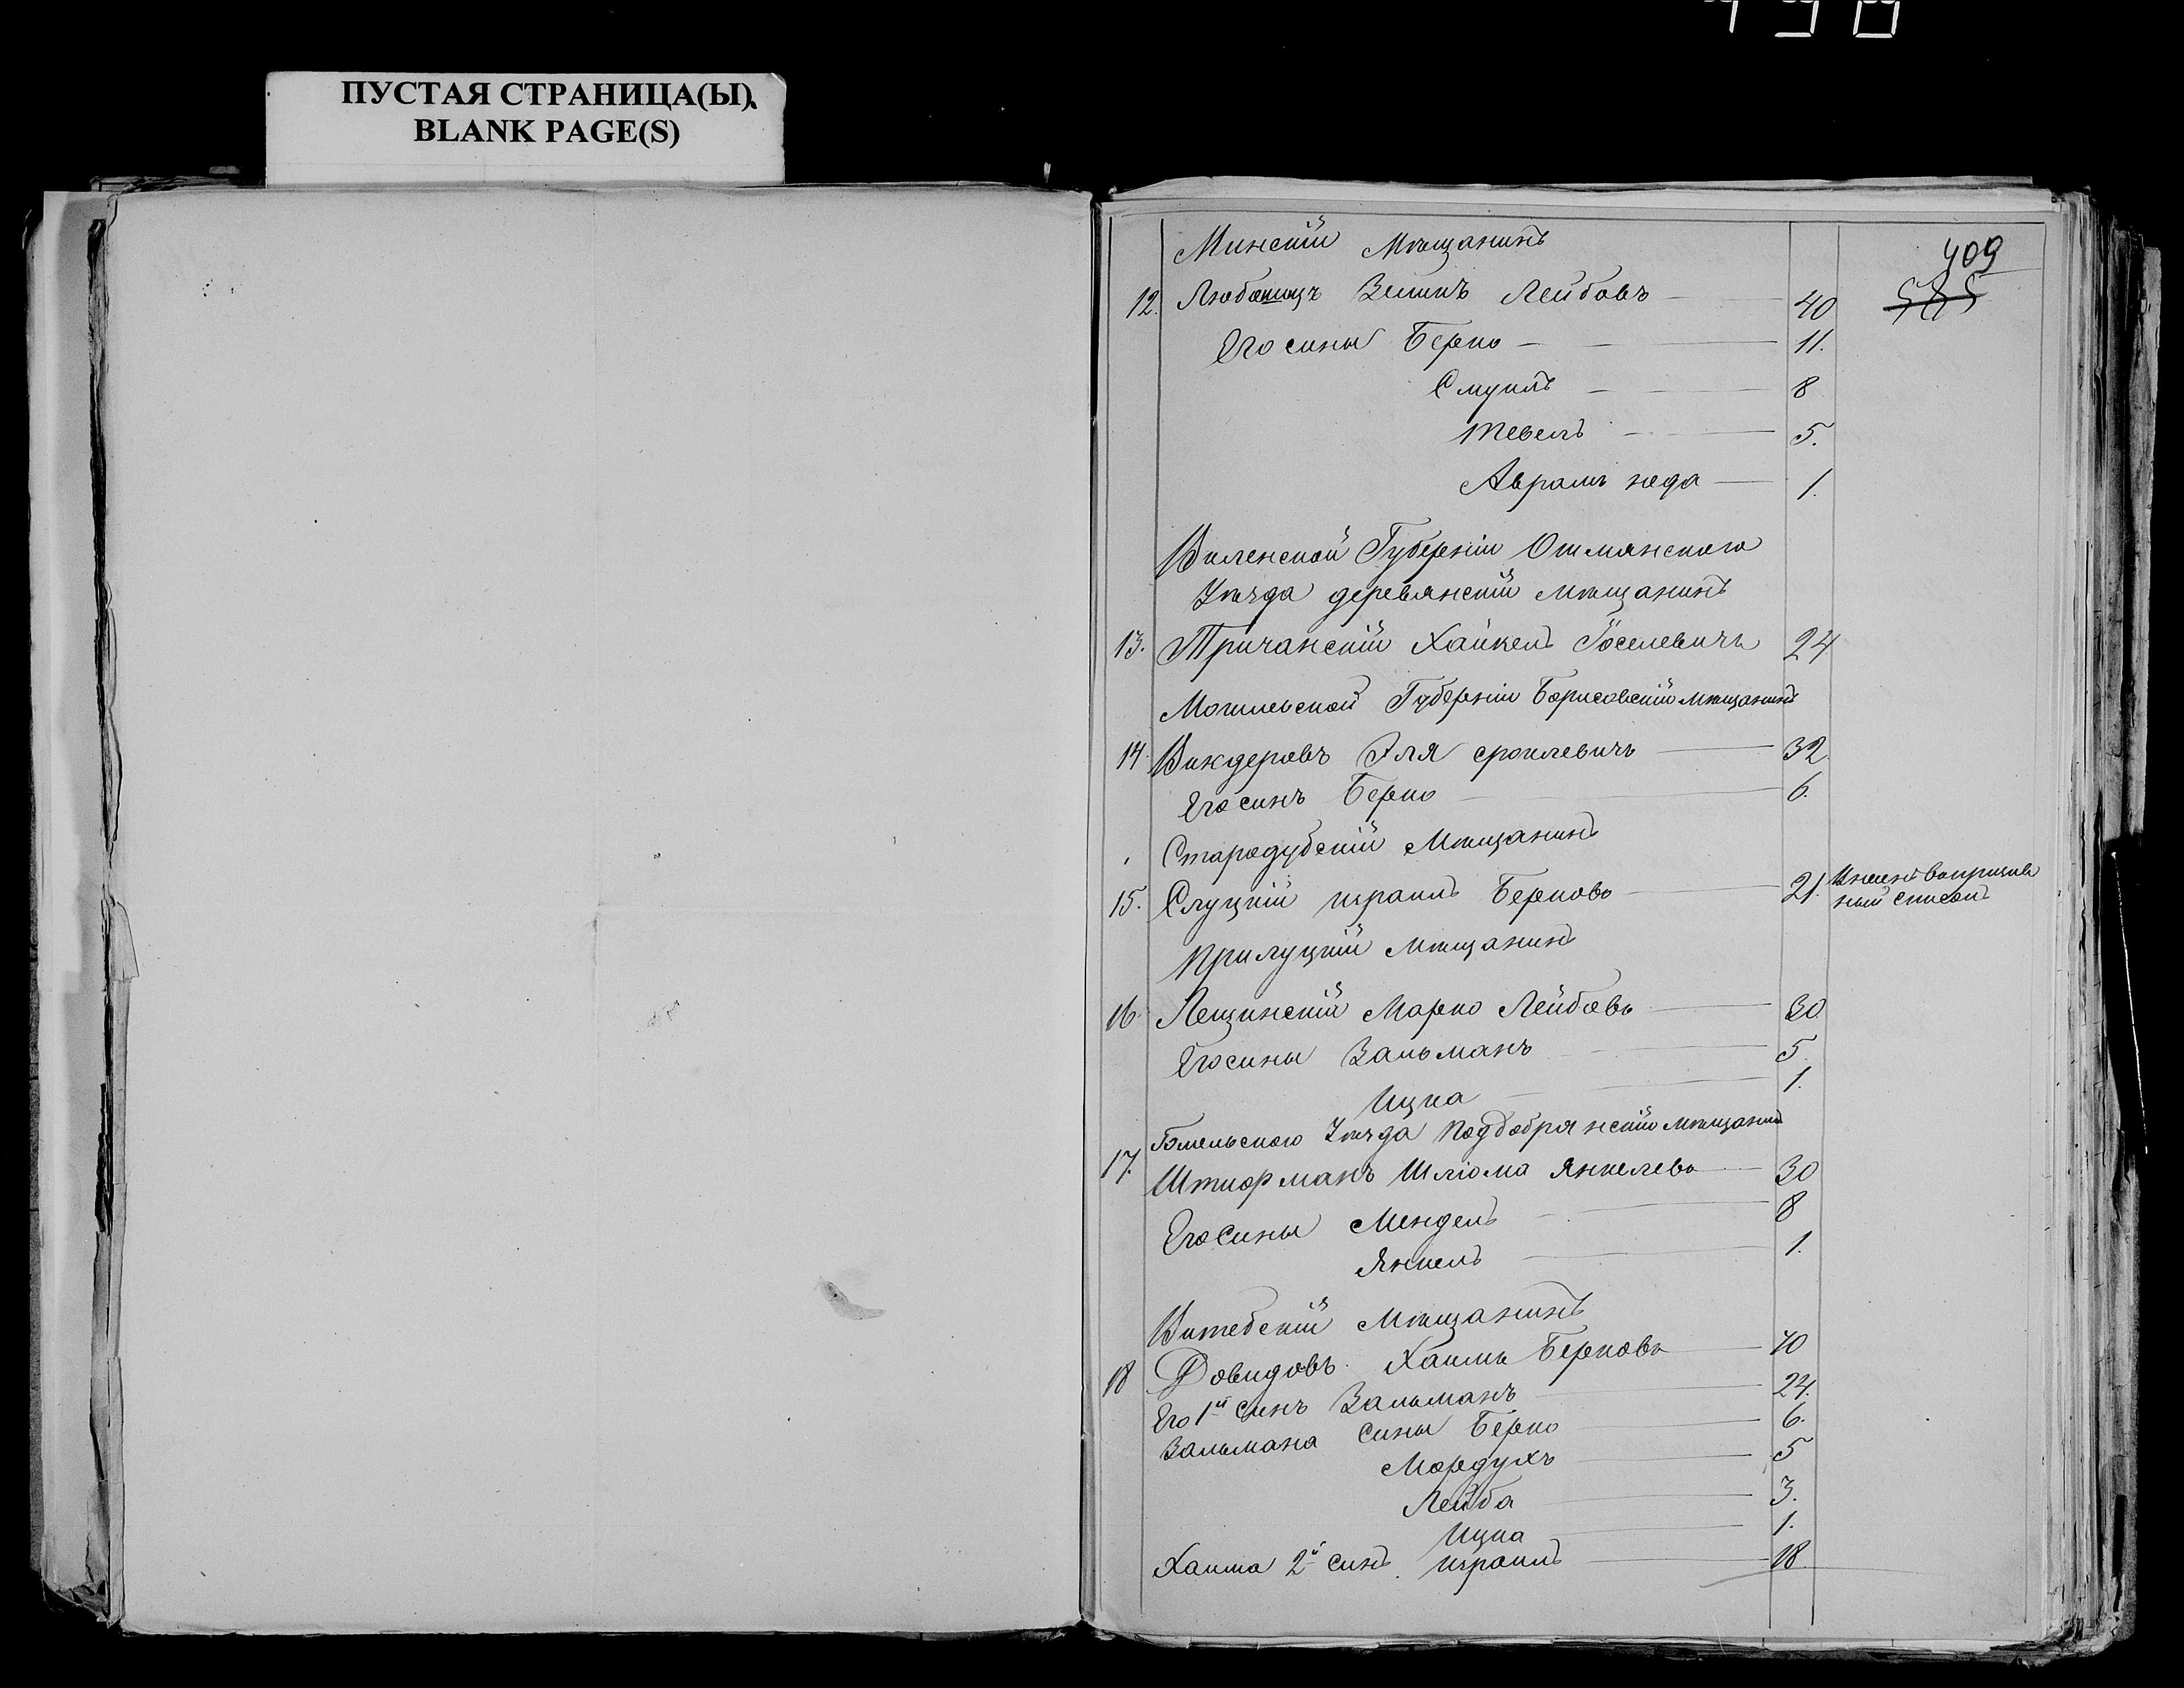 ПУСТАЯ СТРАНИЦА(Ы).
BLANK PAGE(S)
409
585
Минскій Мѣщанинъ
12. Любоницъ Зеликъ Лейбовъ — 40
Его сины Берко — 11.
Смуилъ — 8
Тевель — 5.
Аврамъ года — 1.
Виленской Губерніи Ошмянскаго
Уѣзда деревянскій мѣщанинъ
13. Тричанскій Хайкель Іоселевичъ 24
Могилевской Губерніи Борисовскій мѣщанинъ
14. Викдеровъ Эля сроилевичъ — 32
Его синъ Берко — 6.
Стародубскій Мѣщанинъ
15. Слуцкій израиль Берковъ — 21.
ный списокъ
прилуцкій мѣщанинъ
16. Лещинскій Марко Лейбовъ — 30.
Его сины Зальманъ — 5.
Ицка — 1.
Гомельскаго Уѣзда подобрянскій мѣщанинъ
17. Штюрманъ Шліома Янкелевъ — 30
Его Сины Мендель — 8
Янкель — 1.
Витебскій Мѣщанинъ
18 Довидовъ. Хаимъ Берковъ — 40
Его 1й синъ Зальманъ — 24.
Зальмана сины Берко — 6.
Мордухъ — 5
Лейба — 3.
Ицка — 1.
Хаима 2й синъ. израиль — 18.